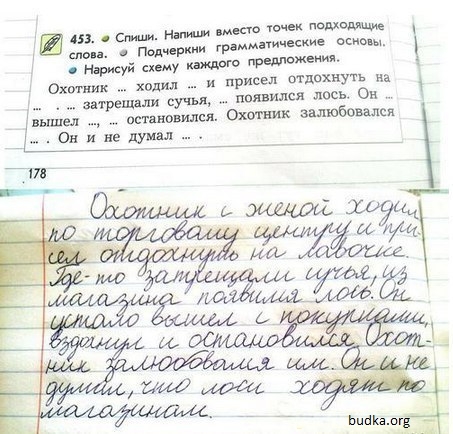 453. • Спиши. Напиши вместо точек подходящие
слова. • Подчеркни грамматические основы.
• Нарисуй схему каждого предложения.
Охотник ... ходил ... и присел отдохнуть на
... . ... затрещали сучья, ... появился лось. Он ...
вышел ..., ... остановился. Охотник залюбовался
... . Он и не думал ... .
178
Охотник с женой ходил
по торговому центру и при-
сел отдохнуть на лавочке.
Где-то затрещали сучья, из
магазина появился лось. Он
устало вышел с покупками,
вздогнул и остановился. Охот-
ник залюбовался им. Он и не
думал, что лоси ходят по
магазинам.
budka.org